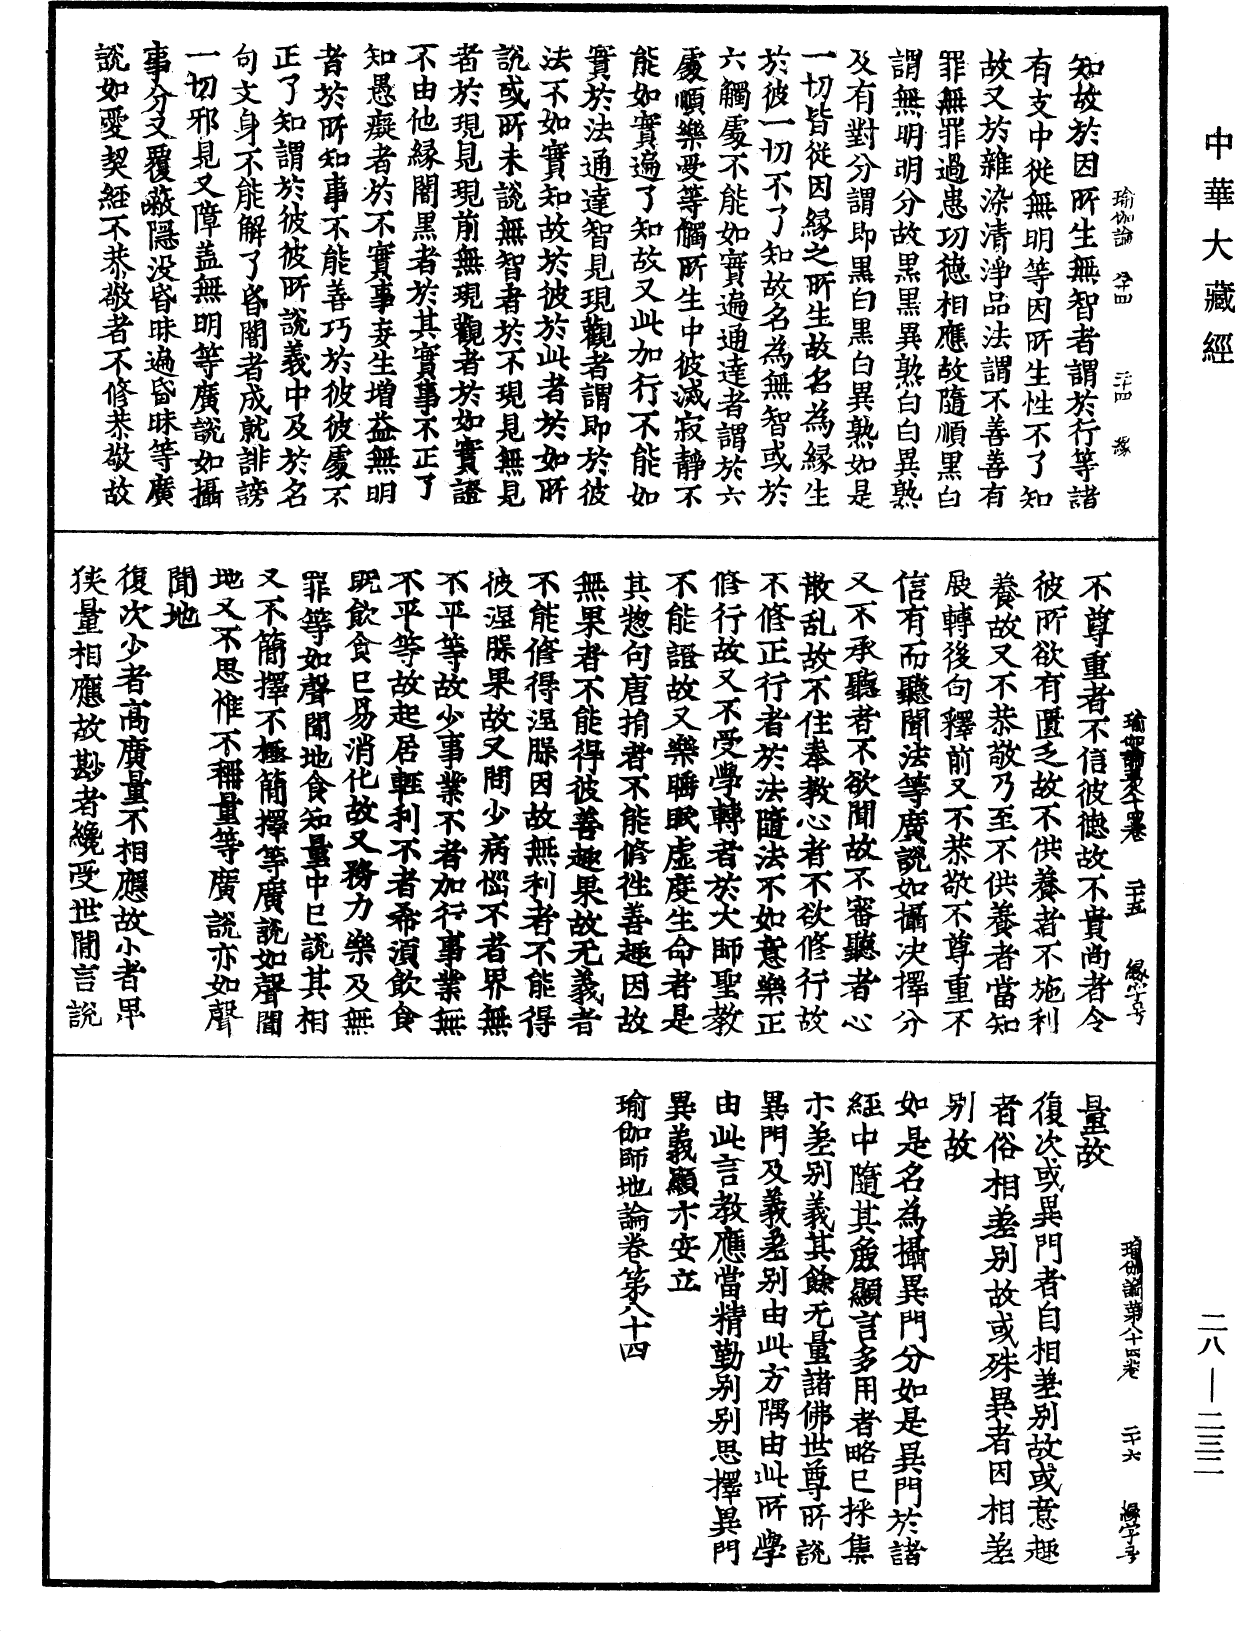 中華大藏經
瑜伽論 八十四 二十四 緣
知故於因所生無智者謂於行等諸
有支中從無明等因所生性不了知
故又於雜染清淨品法謂不善善有
罪無罪過患功德相應故隨順黑白
謂無明明分故黑黑異熟白白異熟
及有對分謂即黑白黑白異熟如是
一切皆從因緣之所生故名為緣生
於彼一切不了知故名為無智或於
六觸處不能如實遍通達者謂於六
處順樂受等觸所生中彼滅寂靜不
能如實遍了知故又此加行不能如
實於法通達智見現觀者謂即於彼
法不如實知故於彼於此者於如所
說或所未說無智者於不現見無見
者於現見現前無現觀者於如實證
不由他緣闇黑者於其實事不正了
知愚癡者於不實事妄生增益無明
者於所知事不能善巧於彼彼處不
正了知謂於彼彼所說義中及於名
句文身不能解了昏闇者成就誹謗
一切邪見又障蓋無明等廣說如攝
事分又覆蔽隱沒昏昧遍昏昧等廣
說如愛契經不恭敬者不修恭敬故
瑜伽論第八十四卷 二十五 緣字号
不尊重者不信彼德故不貴尚者令
彼所欲有匱乏故不供養者不施利
養故又不恭敬乃至不供養者當知
展轉後句釋前又不恭敬不尊重不
信有而聽聞法等廣說如攝決擇分
又不承聽者不欲聞故不審聽者心
散乱故不住奉教心者不欲修行故
不修正行者於法隨法不如意樂正
修行故又不受學轉者於大師聖教
不能證故又樂睡眠虛度生命者是
其惣句唐捐者不能修徃善趣因故
無果者不能得彼善趣果故无義者
不能修得涅槃因故無利者不能得
彼涅槃果故又問少病惱不者界無
不平等故少事業不者加行事業無
不平等故起居輕利不者希湏飲食
既飲食已易消化故又務力樂及無
罪等如聲聞地食知量中已說其相
又不簡擇不極簡擇等廣說如聲聞
地又不思惟不稱量等廣說亦如聲
聞地
復次少者高廣量不相應故小者卑
狹量相應故尠者纔受世間言說
瑜伽論第八十四卷 二十六 緣字号
量故
復次或異門者自相差別故或意趣
者俗相差別故或殊異者因相差
別故
如是名為攝異門分如是異門於諸
經中隨其處顯言多用者略已採集
亦差別義其餘无量諸佛世尊所說
異門及義差別由此方隅由此所學
由此言教應當精勤別別思擇異門
異義顯亦安立
瑜伽師地論卷第八十四
二八—二三二